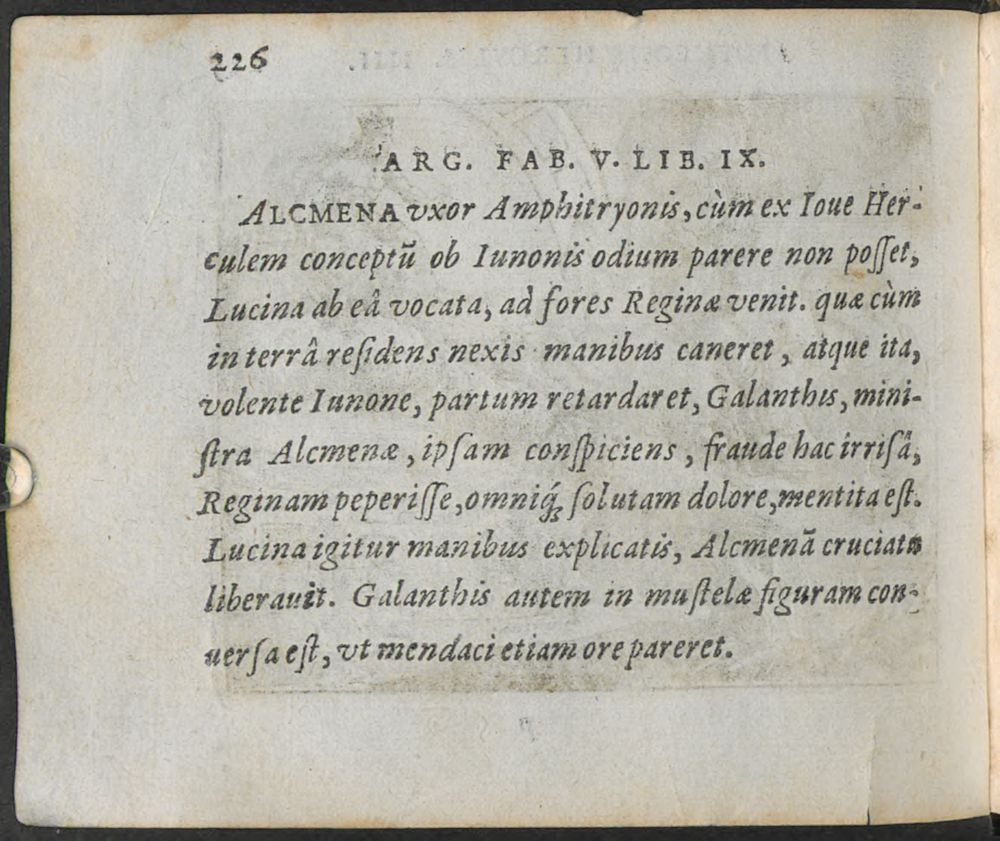 226
ARG. FAB. V. LIB. IX.
ALCMENA vxor Amphitryonis, cùm ex Ioue Her-
culem conceptũ ob Iunonis odium parere non poſſet,
Lucina ab eâ vocata, ad fores Reginæ venit. quæ cùm
in terrâ reſidens nexis manibus caneret, atque ita,
volente Iunone, partum retardaret, Galanthis, mini-
ſtra Alcmenæ, ipſam conſpiciens, fraude hac irriſâ,
Reginam peperiſſe, omniq́; ſolutam dolore, mentita eſt.
Lucina igitur manibus explicatis, Alcmenã cruciatu
liberauit. Galanthis autem in muſtelæ figuram con-
uerſa eſt, vt mendaci etiam ore pareret.